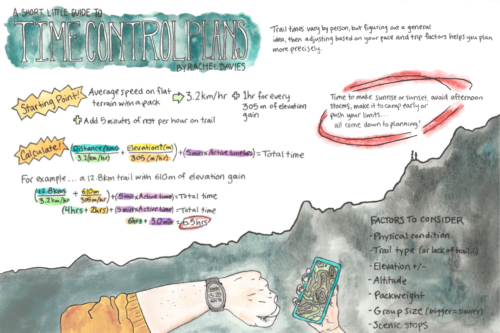 A SHORT LITTLE GUIDE TO
TIME CONTROL PLANS
BY RACHEL DAVIES
Trail times vary by person, but figuring out a general
idea, then adjusting based on your pace and trip factors helps you plan
more precisely.
Starting Point!
Average speed on flat
terrain with a pack
3.2km/hr
+ 1hr for every
305m of elevation
gain
+ Add 5 minutes of rest per hour on trail
Time to make sunrise or sunset, avoid afternoon
storms, make it to camp early or
push your limits...
all come down to planning!
Calculate!
Distance (km)
3.2 (km/hr)
+
Elevation (m)
305 (m/hr)
+ (5min x Active time hrs) = Total time
For example... a 12.8km trail with 610m of elevation gain
12.8km
3.2km/hr
+
610m
305m/hr
+ (5min x Active time) = Total time
(4hrs + 2hrs) + (5min x Active time) = Total time
6hrs + 30min = 6.5hrs
FACTORS TO CONSIDER
- Physical condition
- Trail type (or lack of trail!)
- Elevation +/-
- Altitude
- Packweight
- Group size (bigger=slower)
- Scenic stops